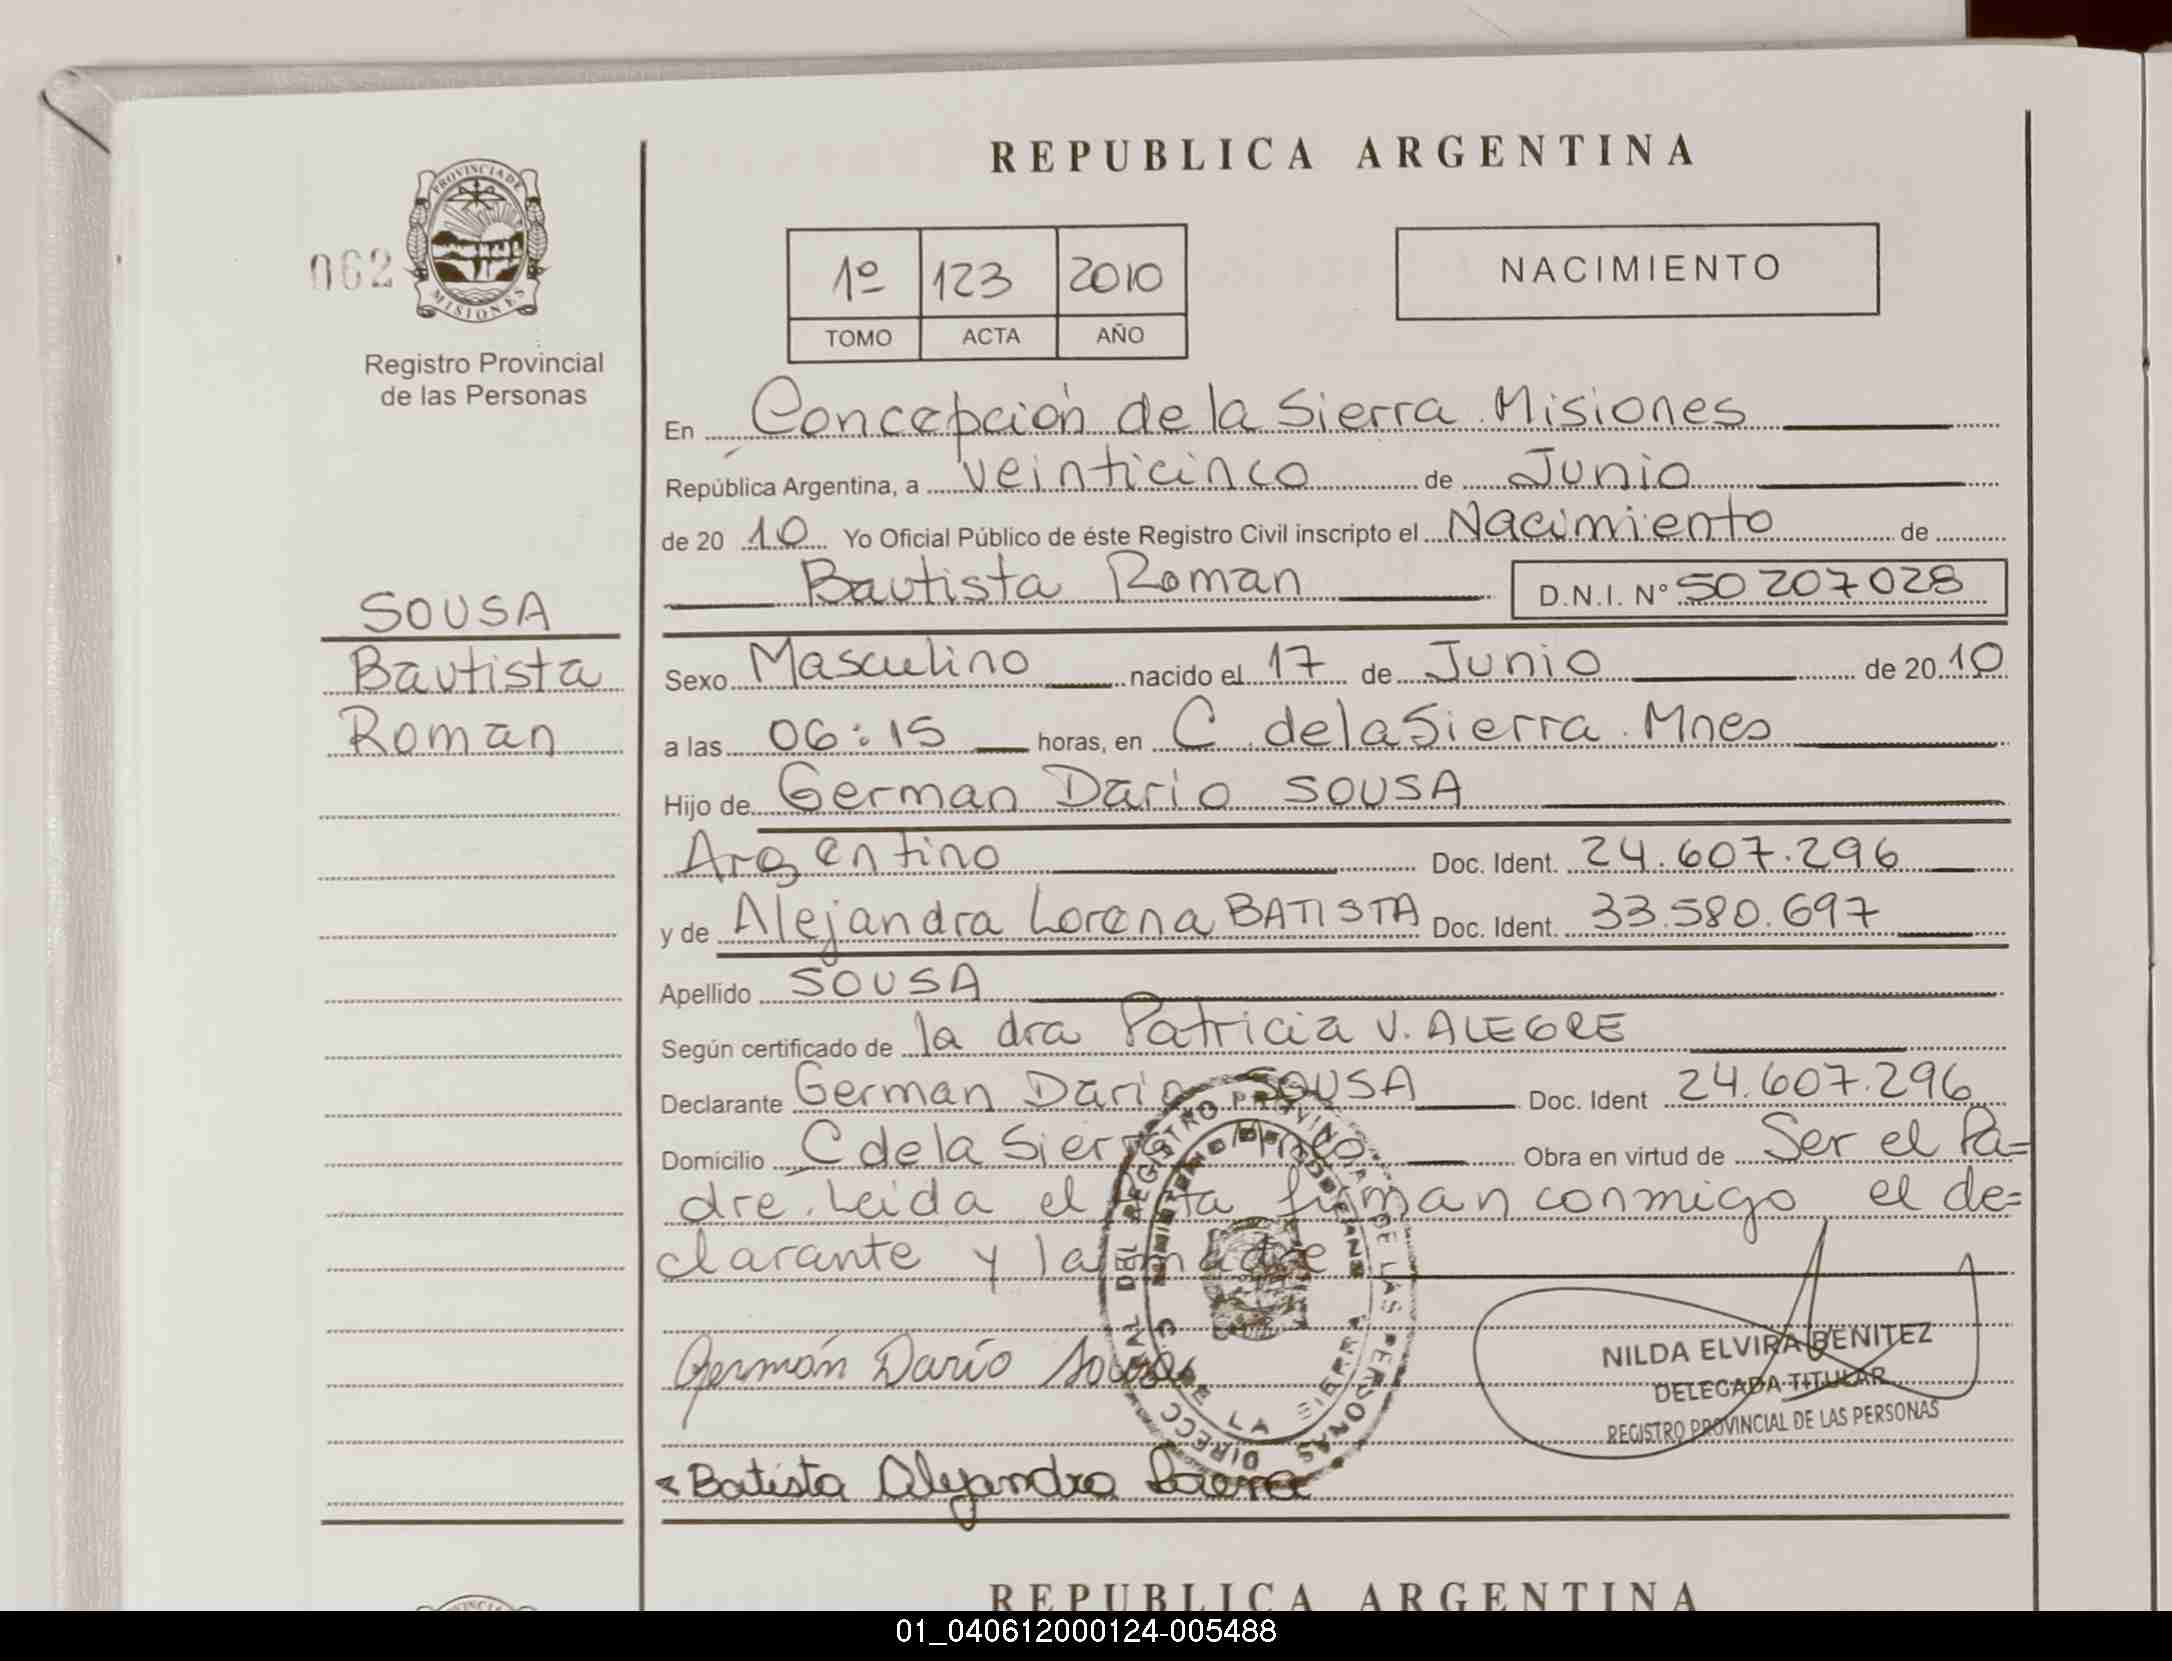 REPUBLICA ARGENTINA
PROVINCIA DE
MISIONES
062
Registro Provincial
de las Personas
1º 123 2010
TOMO ACTA AÑO
NACIMIENTO
En Concepción de la Sierra. Misiones
República Argentina, a veinticinco de Junio
de 20 10 Yo Oficial Público de éste Registro Civil inscripto el Nacimiento de
Bautista Roman D.N.I. Nº 50 207 028
SOUSA
Bautista
Roman
Sexo Masculino nacido el 17 de Junio de 20 10
a las 06:15 horas, en C. de la Sierra. Mnes
Hijo de German Dario SOUSA
Argentino Doc. Ident. 24.607.296
y de Alejandra Lorena BATISTA Doc. Ident. 33.580.697
Apellido SOUSA
Según certificado de la dra Patricia V. ALEGRE
Declarante German Dario SOUSA Doc. Ident 24.607.296
Domicilio C de la Sierra Mnes Obra en virtud de Ser el Pa=
dre. Leida el Acta firman conmigo el de=
clarante y la madre
DIRECC. GRAL DEL REGISTRO PROVINCIAL DE LAS PERSONAS
MINISTERIO DE GOBIERNO
C. DE LA SIERRA
Germán Darío Sousa
NILDA ELVIRA BENITEZ
DELEGADA TITULAR
REGISTRO PROVINCIAL DE LAS PERSONAS
Batista Alejandra Lorena
REPUBLICA ARGENTINA
01_040612000124-005488